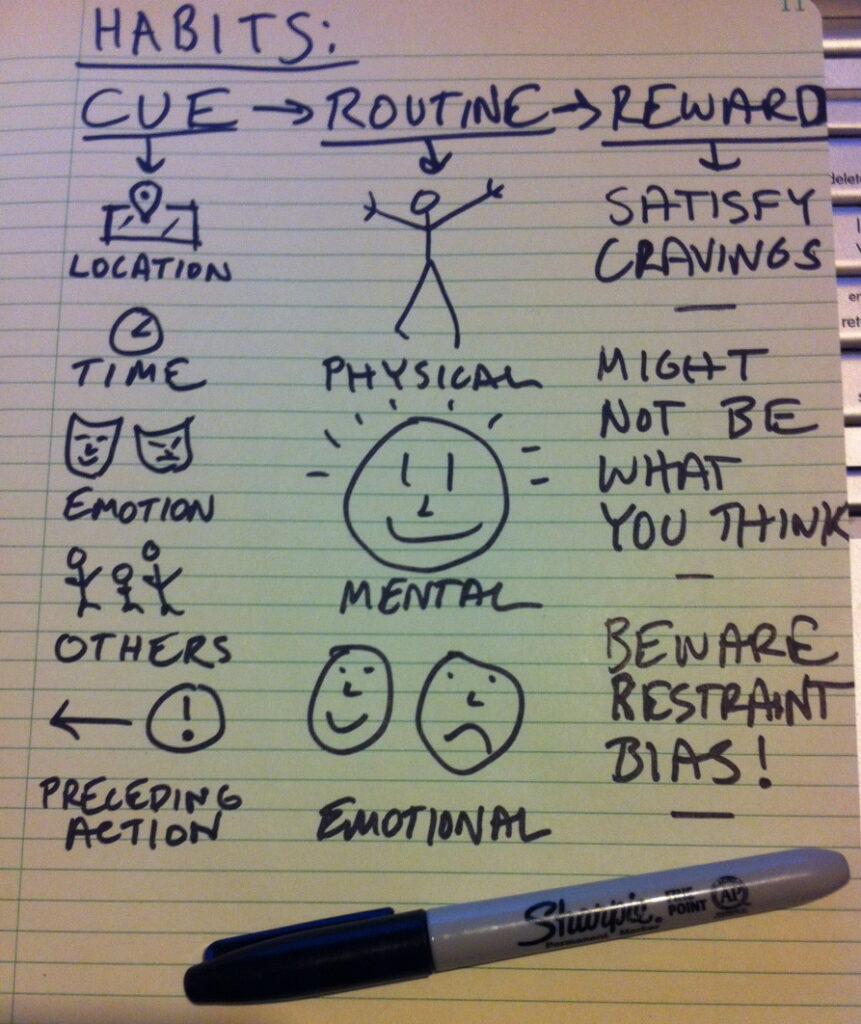 11
HABITS:
CUE → ROUTINE → REWARD
LOCATION
TIME
EMOTION
OTHERS
PRECEDING
ACTION
PHYSICAL
MENTAL
EMOTIONAL
SATISFY
CRAVINGS
—
MIGHT
NOT BE
WHAT
YOU THINK
—
BEWARE
RESTRAINT
BIAS!
—
Sharpie. FINE POINT AP
Permanent Marker
delete